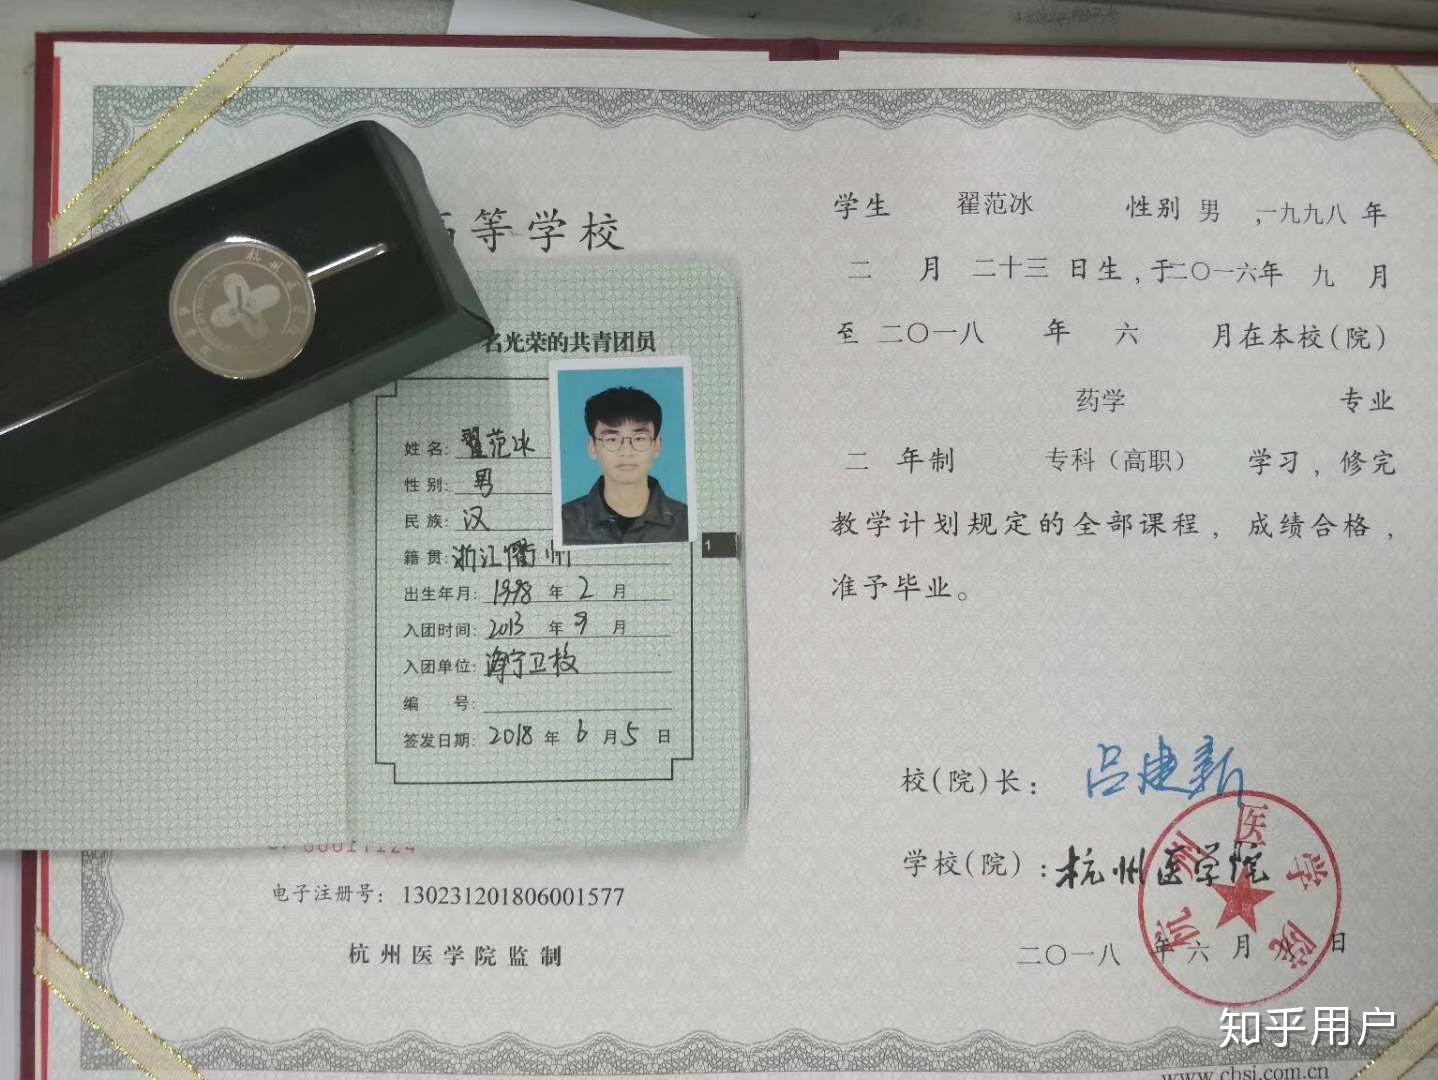 等学校
名光荣的共青团员
姓名: 翟范冰
性别: 男
民族: 汉
籍贯: 浙江衢州
出生年月: 1998 年 2 月
入团时间: 2013 年 9 月
入团单位: 海宁卫校
编 号:
签发日期: 2018 年 6 月 5 日
1
电子注册号: 130231201806001577
杭州医学院监制
学生 翟范冰 性别 男 ,一九九八 年
二 月 二十三 日生,于二〇一六年 九 月
至 二〇一八 年 六 月在本校(院)
药学 专业
二 年制 专科（高职） 学习，修完
教学计划规定的全部课程，成绩合格，
准予毕业。
校(院)长: 吕建新
学校(院):杭州医学院
二〇一八 年 六 月 八 日
杭州医学院
知乎用户
www.chsi.com.cn